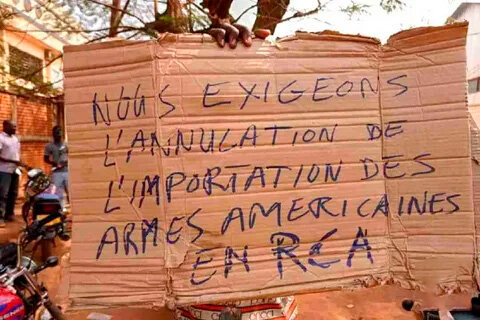 NOUS EXIGEONS
L'ANNULATION DE
L'IMPORTATION DES
ARMES AMERICAINES
EN RCA